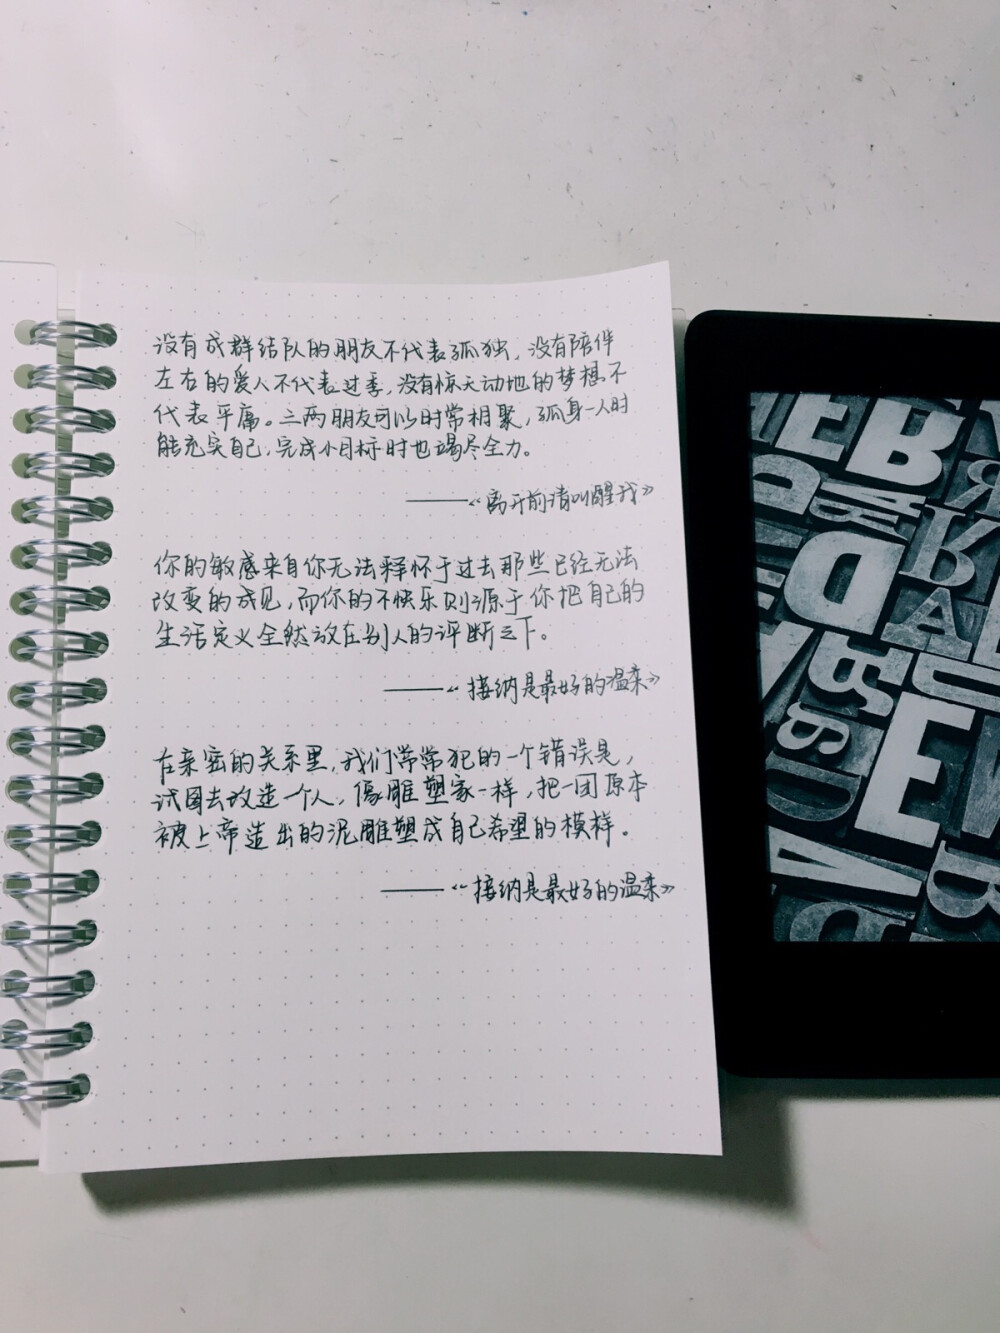 没有成群结队的朋友不代表孤独，没有陪伴
左右的爱人不代表过季，没有惊天动地的梦想不
代表平庸。三两朋友可以时常相聚，孤身一人时
能充实自己，完成小目标时也竭尽全力。
——《离开前请叫醒我》
你的敏感来自你无法释怀于过去那些已经无法
改变的成见，而你的不快乐则源于你把自己的
生活定义全然放在别人的评断之下。
——《接纳是最好的温柔》
在亲密的关系里，我们常常犯的一个错误是，
试图去改造一个人，像雕塑家一样，把一团原本
被上帝造出的泥雕塑成自己希望的模样。
——《接纳是最好的温柔》